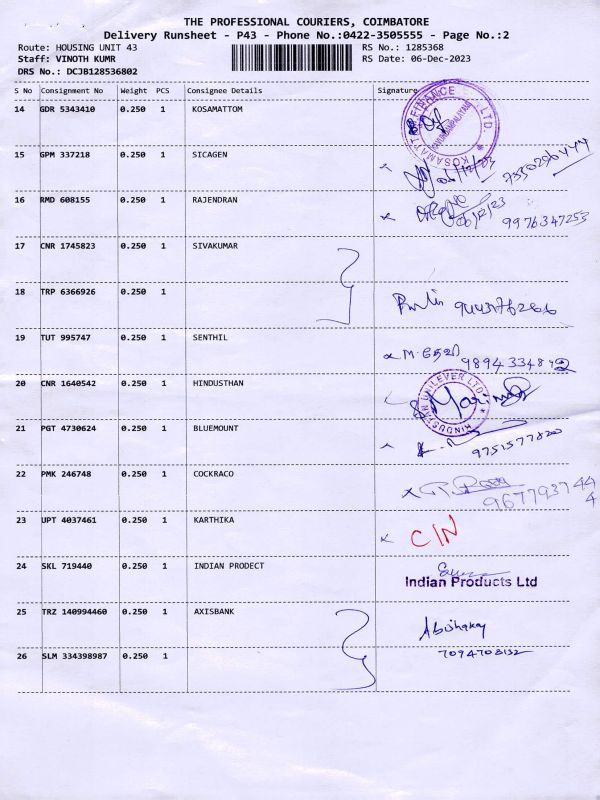 THE PROFESSIONAL COURIERS, COIMBATORE
Delivery Runsheet - P43 - Phone No.:0422-3505555 - Page No.:2
Route: HOUSING UNIT 43 RS No.: 1285368
Staff: VINOTH KUMR RS Date: 06-Dec-2023
DRS No.: DCJB128536802
S No Consignment No Weight PCS Consignee Details Signature
14 GDR 5343410 0.250 1 KOSAMATTOM
KOSAMATTAM FINANCE LTD.
15 GPM 337218 0.250 1 SICAGEN
06/12/23 7550296444
16 RMD 608155 0.250 1 RAJENDRAN
06/12/23
9976347253
17 CNR 1745823 0.250 1 SIVAKUMAR
18 TRP 6366926 0.250 1
19 TUT 995747 0.250 1 SENTHIL
9894334842
20 CNR 1640542 0.250 1 HINDUSTHAN
HINDUSTAN UNILEVER LTD
21 PGT 4730624 0.250 1 BLUEMOUNT
9751577820
22 PMK 246748 0.250 1 COCKRACO
23 UPT 4037461 0.250 1 KARTHIKA
C/N
24 SKL 719440 0.250 1 INDIAN PRODECT
Indian Products Ltd
25 TRZ 140994460 0.250 1 AXISBANK
26 SLM 334398987 0.250 1